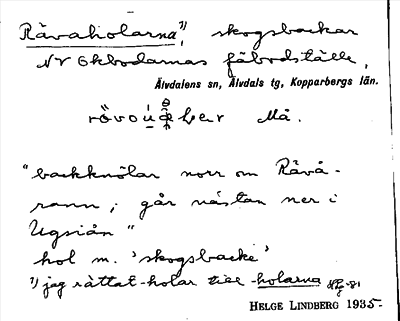 Rävaholarna¹⁾, skogsbackar
NV Okbodarnas fäbodställe,
Älvdalens sn, Älvdals tg, Kopparbergs län.
Må.
"backknölar norr om Rävå-
rann; går nästan ner i
Ugsiån"
hol m. 'skogsbacke'
¹⁾ jag rättat -holar till -holarna
HELGE LINDBERG 1935-